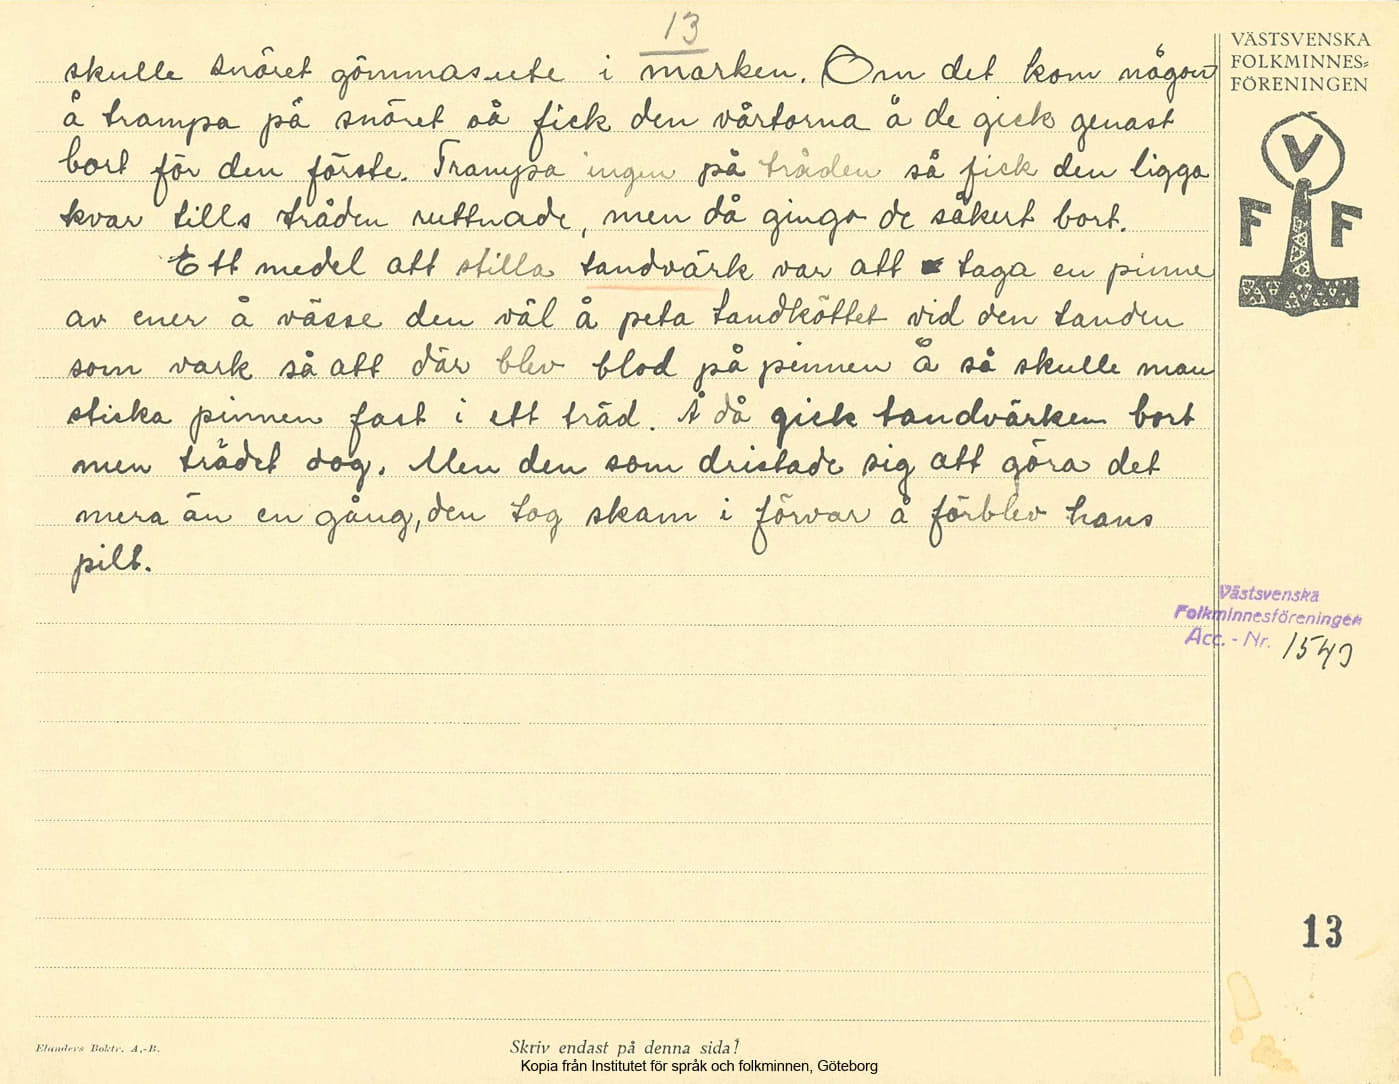 13
skulle snöret gömmas ute i marken. Om det kom någon
å trampa på snöret så fick den vårtorna å de gick genast
bort för den förste. Trampa ingen på tråden så fick den ligga
kvar tills tråden ruttnade, men då gingo de säkert bort.
Ett medel att stilla tandvärk var att taga en pinne
av ener å vässe den väl å peta tandköttet vid den tanden
som vark så att där blev blod på pinnen å så skulle man
sticka pinnen fast i ett träd. Å då gick tandvärken bort
men trädet dog. Men den som dristade sig att göra det
mera än en gång, den tog skam i förvar å förblev hans
pilt.
VÄSTSVENSKA
FOLKMINNES-
FÖRENINGEN
V
F F
Västsvenska
Folkminnesföreningen
Acc. - Nr. 1549
13
Elanders Boktr. A.-B.
Skriv endast på denna sida!
Kopia från Institutet för språk och folkminnen, Göteborg